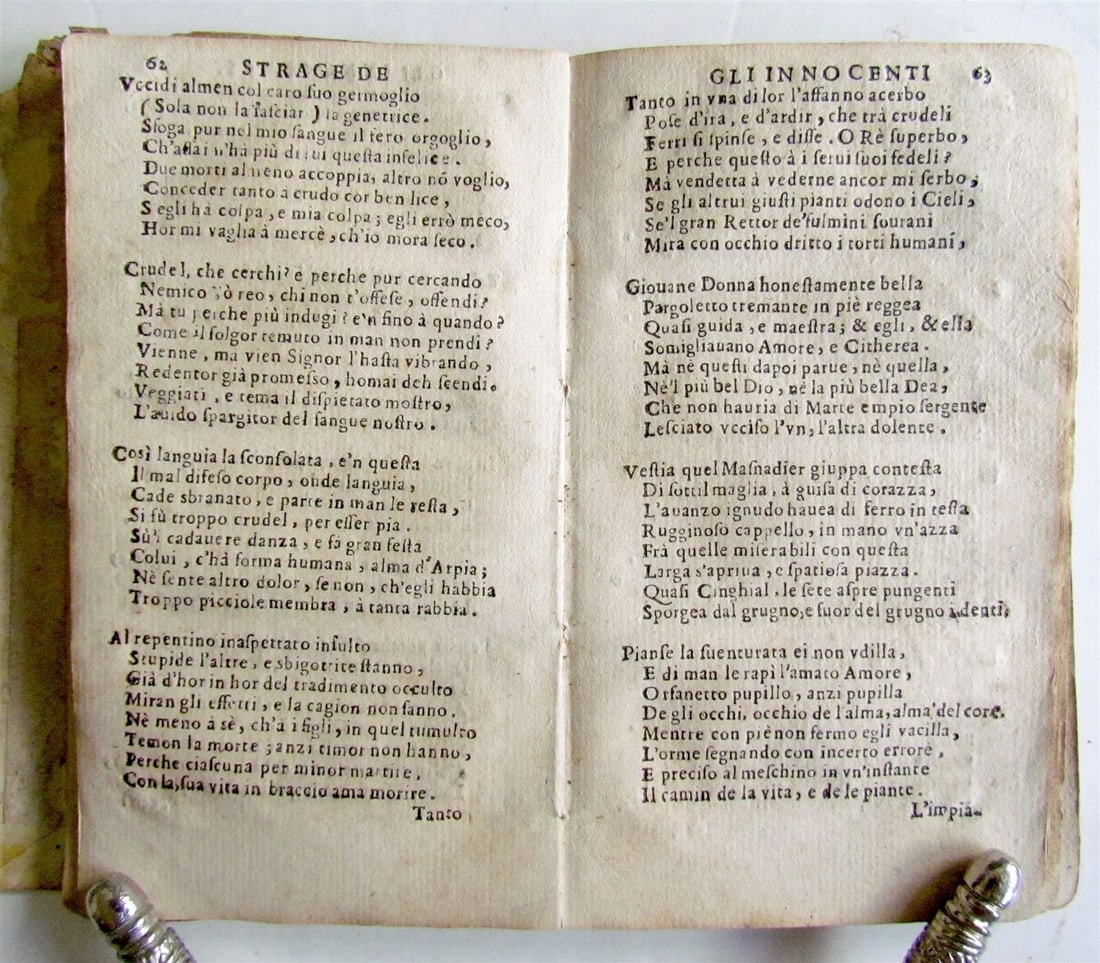 62 STRAGE DE
Vccidi almen col caro ſuo germoglio
(Sola non la laſciar) la genetrice.
Sfoga pur nel mio ſangue il fero orgoglio,
Ch'aſſai n'hà più di lui queſta infelice.
Due morti almeno accoppia, altro nõ voglio,
Conceder tanto a crudo cor ben lice,
S egli hà colpa, e mia colpa; egli errò meco,
Hor mi vaglia à mercè, ch'io mora ſeco.
Crudel, che cerchi? e perche pur cercando
Nemico ò reo, chi non t'offeſe, offendi?
Mà tu perche più indugi? e'n fino à quando?
Come il folgor temuto in man non prendi?
Vienne, ma vien Signor l'haſta vibrando,
Redentor già promeſſo, homai deh ſcendi.
Veggiati, e tema il diſpietato moſtro,
L'auido ſpargitor del ſangue noſtro.
Così languia la ſconſolata, e'n queſta
Il mal difeſo corpo, onde languia,
Cade sbranato, e parte in man le reſta,
Si fù troppo crudel, per eſſer pia.
Sù'l cadauere danza, e fà gran feſta
Colui, c'hà forma humana, alma d'Arpia;
Nè ſente altro dolor, ſe non, ch'egli habbia
Troppo picciole membra, à tanta rabbia.
Al repentino inaſpettato inſulto
Stupide l'altre, e sbigotrite ſtanno,
Già d'hor in hor del tradimento occulto
Miran gli effetti, e la cagion non ſanno.
Nè meno à sè, ch'à i figli, in quel tumulto
Temon la morte; anzi timor non hanno,
Perche ciaſcuna per minor martire,
Con la ſua vita in braccio ama morire.
Tanto
GLI INNOCENTI 63
Tanto in vna di lor l'affanno acerbo
Poſe d'ira, e d'ardir, che trà crudeli
Ferri ſi ſpinſe, e diſſe. O Rè ſuperbo,
E perche queſto à i ſerui ſuoi fedeli?
Mà vendetta à vederne ancor mi ſerbo,
Se gli altrui giuſti pianti odono i Cieli,
Se'l gran Rettor de'fulmini ſourani
Mira con occhio dritto i torti humani,
Giouane Donna honeſtamente bella
Pargoletto tremante in piè reggea
Quaſi guida, e maeſtra; & egli, & ella
Somigliauano Amore, e Citherea.
Mà nè queſti dapoi parue, nè quella,
Nè'l più bel Dio, nè la più bella Dea,
Che non hauria di Marte empio ſergente
Leſciato vcciſo l'vn, l'altra dolente.
Veſtia quel Maſnadier giuppa conteſta
Di ſottil maglia, à guiſa di corazza,
L'auanzo ignudo hauea di ferro in teſta
Rugginoſo cappello, in mano vn'azza
Frà quelle miſerabili con queſta
Larga s'apriua, e ſpatioſa piazza.
Quaſi Cinghial, le ſete aſpre pungenti
Sporgea dal grugno, e fuor del grugno i denti,
Pianſe la ſuenturata ei non vdilla,
E di man le rapì l'amato Amore,
Orfanetto pupillo, anzi pupilla
De gli occhi, occhio de l'alma, alma del core.
Mentre con piè non fermo egli vacilla,
L'orme ſegnando con incerto errore,
E preciſo al meſchino in vn'inſtante
Il camin de la vita, e de le piante.
L'impia-